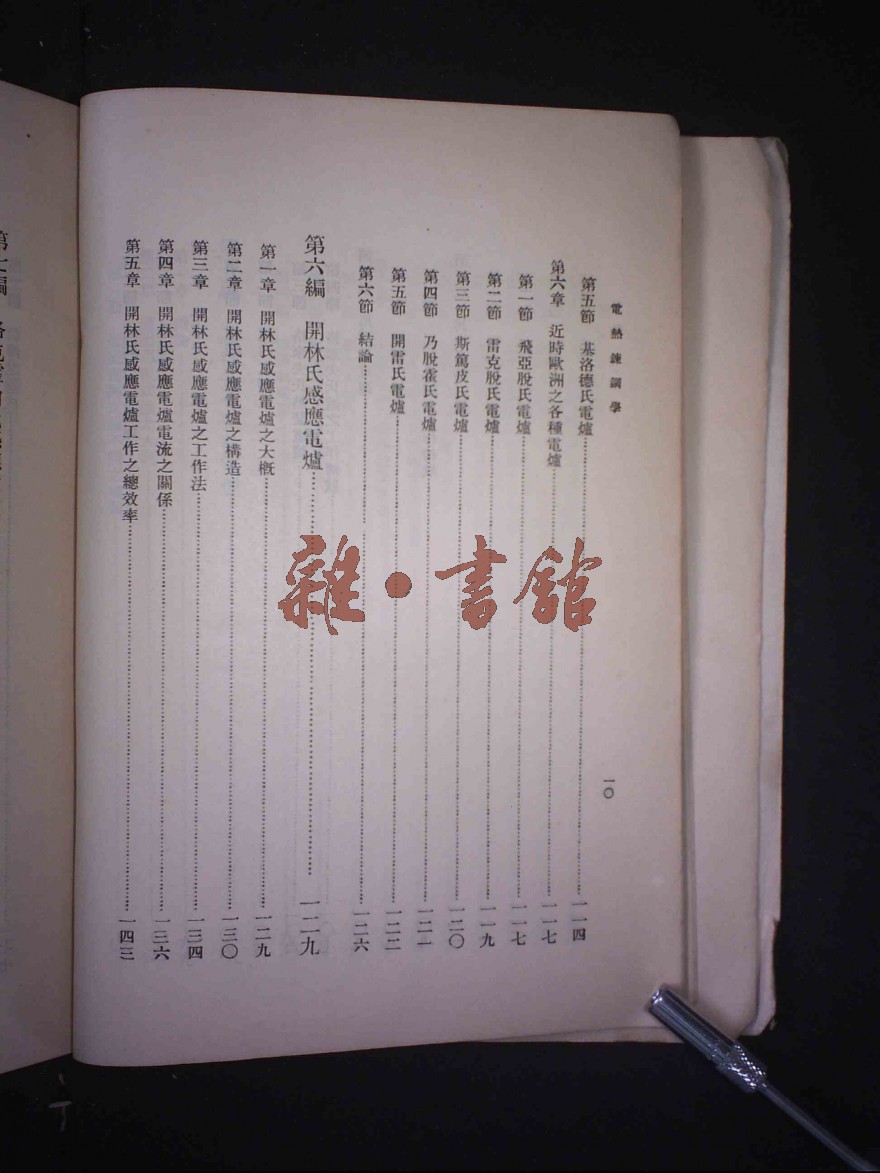 電熱鍊鋼學
一〇
第五節 基洛德氏電爐……一一四
第六章 近時歐洲之各種電爐……一一七
第一節 飛亞脫氏電爐……一一七
第二節 雷克脫氏電爐……一一九
第三節 斯篤皮氏電爐……一二〇
第四節 乃脫霍氏電爐……一二一
第五節 開雷氏電爐……一二二
第六節 結論……一二六
第六編 開林氏感應電爐……一二九
第一章 開林氏感應電爐之大槪……一二九
第二章 開林氏感應電爐之構造……一三〇
第三章 開林氏感應電爐之工作法……一三四
第四章 開林氏感應電爐電流之關係……一三六
第五章 開林氏感應電爐工作之總效率……一四三
雜·書館